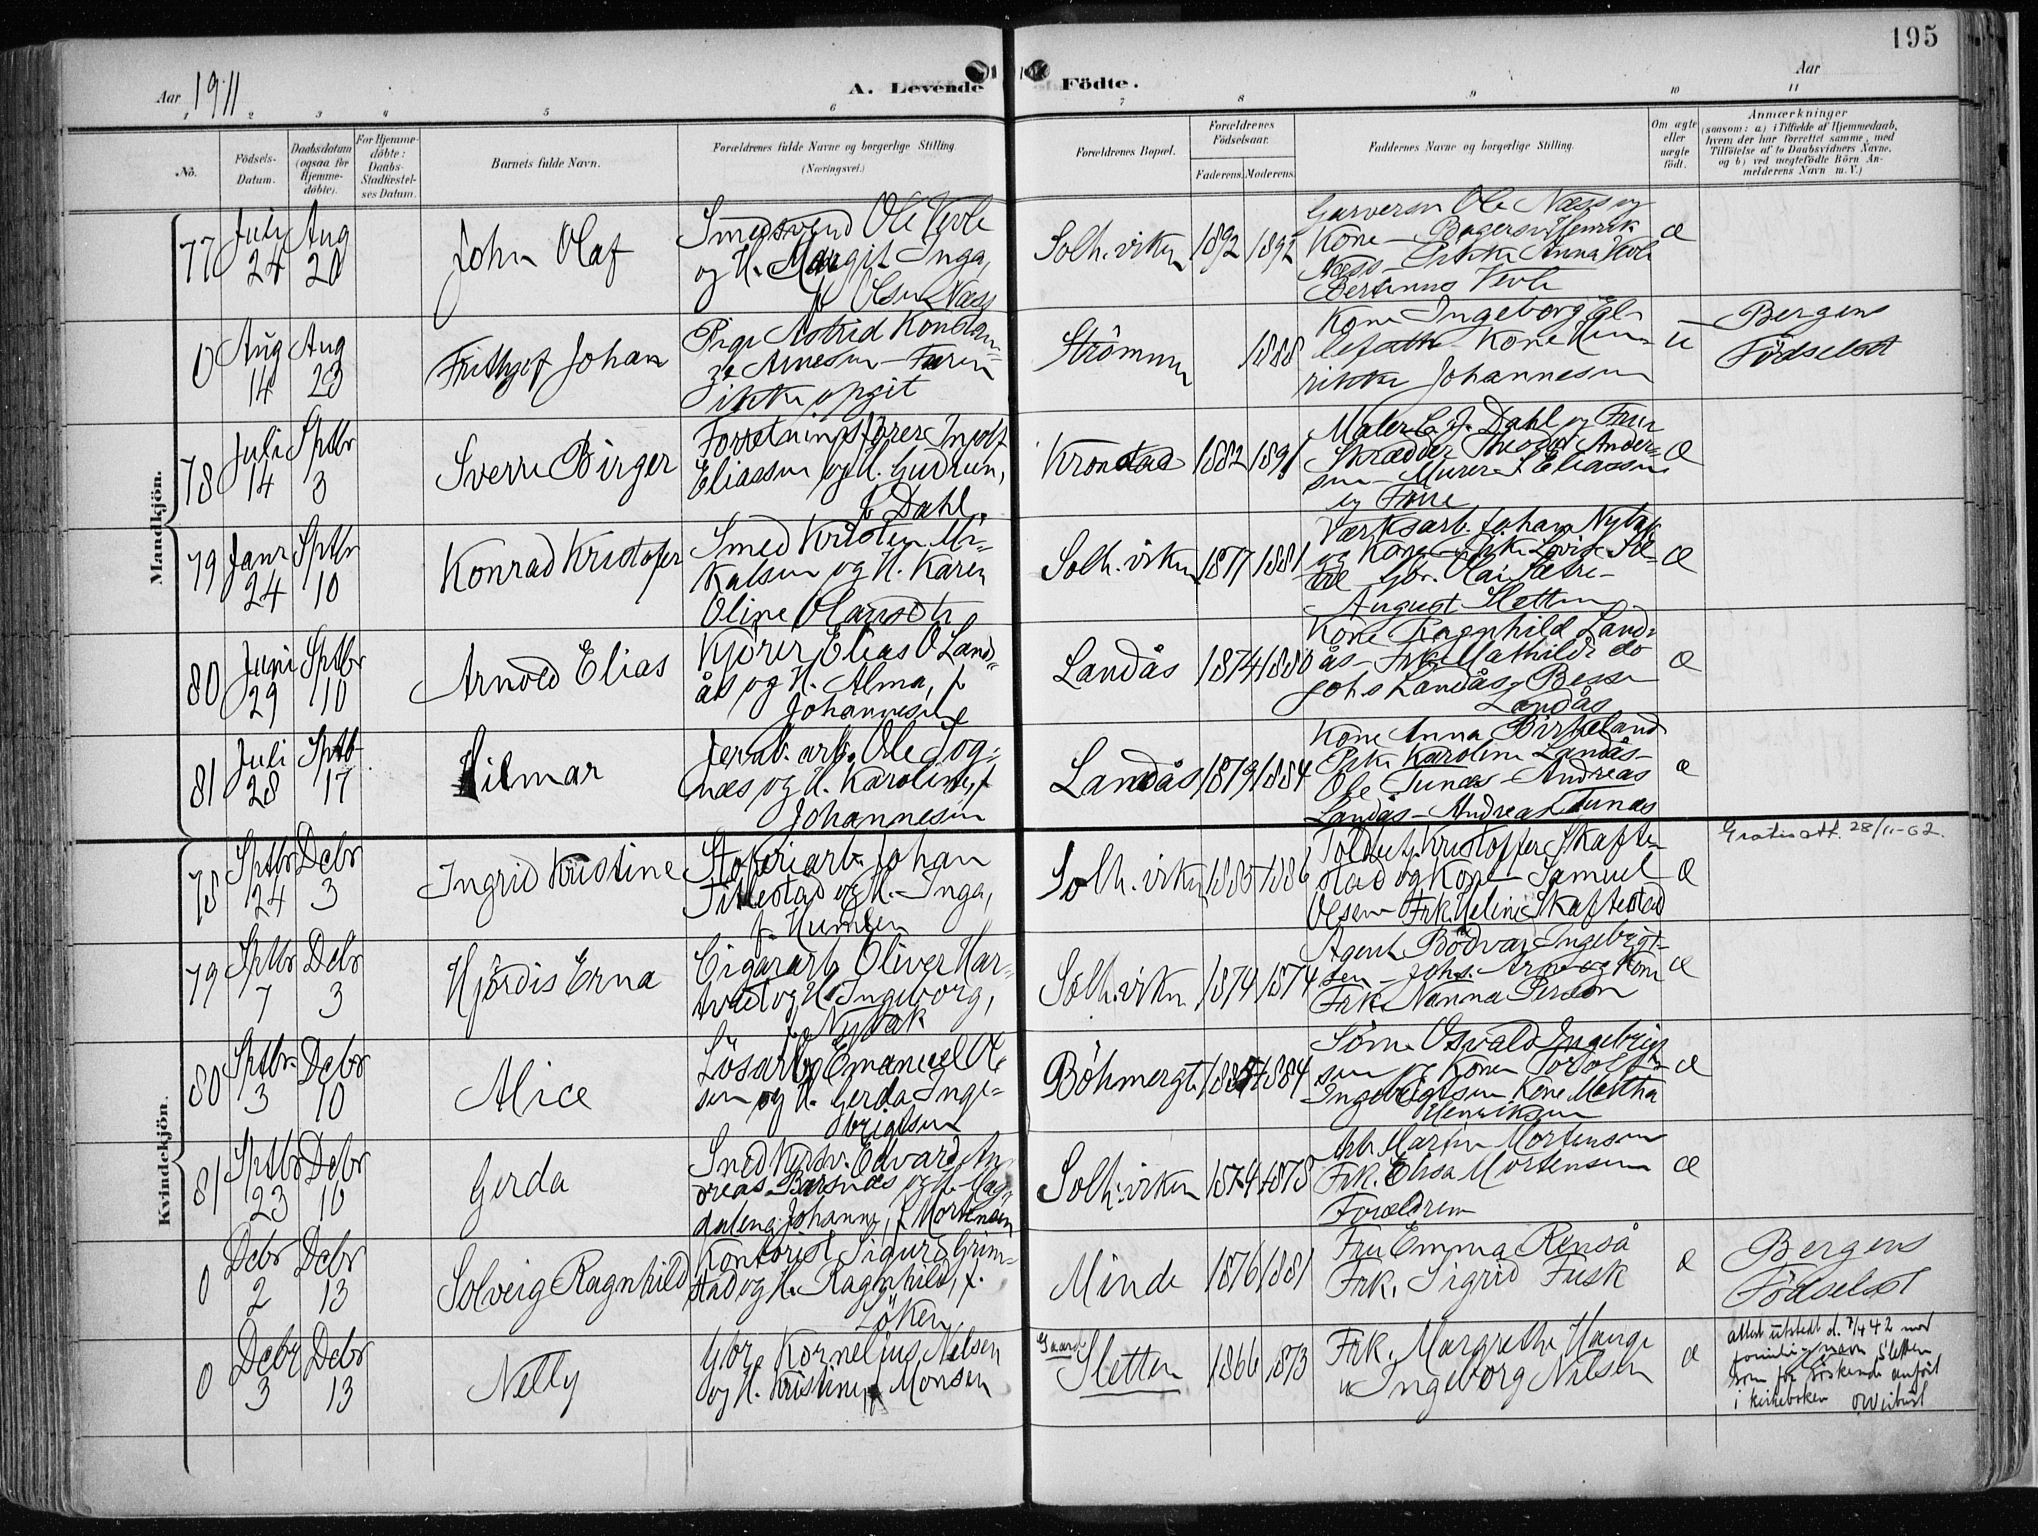 195
Aar 1911
A. Levende
Födte.
Aar
1 2 3 4 5 6 7 8 9 10 11
No.
Födsels-
Datum.
Daabsdatum
(ogsaa for
Hjemme-
döbte).
For Hjemme-
döbte:
Daabs-
Stadfæstel-
ses Datum.
Barnets fulde Navn.
Forældrenes fulde Navne og borgerlige Stilling
(Næringsvei.)
Forældrenes Bopæl.
Forældrenes
Födselsaar.
Faderens. Moderens.
Faddernes Navne og borgerlige Stilling.
Om ægte
eller
uægte
født.
Anmærkninger
(saasom: a) i Tilfælde af Hjemmedaab,
hvem der har forrettet samme, med
Tilföielse af to Daabsvidners Navne,
og b) ved uægtefödte Börn An-
melderens Navn m. V.)
Mandkjön.
77 Juli 24 Aug 20
John Olaf
Smedsvend Ole Vevle
og H. Margit Inga,
f. Olsen Næss
Solh.viken 1892 1892
Garversv Ole Næss og
Kone - Bagersv Henrik
Næss - Anna Vevle
Bertinius Vevle
æ
0 Aug 14 Aug 23
Frithjof Johan
Pige Astrid Konstan-
ze Arnesen - Faren
ikke opgit
Strömmen 1888
Kone Ingeborg
Kone Hen-
rikke Johannesen
u
Bergens
Födselsst
78 Juli 14 Sptbr 3
Sverre Birger
Forretningsförer Ingolf
Eliassen og H. Gudrun,
f. Dahl.
Kronstad 1882 1891
Maler C. J. Dahl og Frue
Skrædder Theodor Ander-
sen - Murer J. Eliassen
og Frue
Æ
79 Janr 24 Sptbr 10
Konrad Kristofer
Smed Kristen Mi-
kalsen og H. Karen
Oline
Solh.viken 1877 1881
Værksarb. Johan Nybak
og Kone - Frk. Lovise Sæ-
tre Gbr. Olai Sætre -
August Sletten
Æ
80 Juni 29 Sptbr 10
Arnold Elias
Kjörer Elias O Land-
ås og H. Alma, f
Johannesen
Landås 1874 1880
Kone Ragnhild Land-
ås - Frk. Mathilde do
Johs Landås,
Landås
æ
81 Juli 28 Sptb 17
Hilmar
Jernb. arb. Ole Sog-
næs og H. Karoline, f
Johannesen
Landås 1879 1884
Kone Anna Birkeland
Frk. Karoline Landås -
Ole Tunæs - Andreas
Landås - Andreas Tunæs
æ
Kvindekjön.
78 Sptbr 24 Debr 3
Ingrid Kristine
Stoperiarb. Johan
Tittestad og H. Inga,
f. Humlen
Solh.viken 1885 1886
Toldbetj. Kristoffer Skafte-
stad og Kone - Samuel
Olsen Frk. Heline Skaftestad
Æ
Gratis att. 28/11-62.
79 Sptbr 7 Debr 3
Hjördis Erna
Cigararb Oliver Har-
tveit og H. Ingeborg,
f. Nybak
Solh.viken 1874 1874
Agent Bödvar Ingebrigt-
sen - Johs. Arne og Kone
Frk. Nanna Person
æ
80 Sptbr. 3 Debr 10
Alice
Lösarb Emanuel Ol-
sen og H. Gerda Inge-
brigtsen
Böhmergt. 1884
Osvald Ingebrigt-
sen og Kone Torolf
Ingebrigtsen Kone Martha
Henriksen
æ
81 Sptbr 23 Debr 10
Gerda
Smed Edvard An-
dreas Barsnæs og H. Mag-
dalena Johanne, f. Mortensen
Solh.viken 1874 1878
Arb. Martin Mortensen
Frk. Elisa Mortensen
Forældrene
æ
0 Debr 2 Debr 13
Solveig Ragnhild
Kontorist Sigurd Grim-
stad og H. Ragnhild, f.
Löken
Minde 1876 1881
Fru Emma Renså
Frk. Sigrid Fusk
æ
Bergens
Födselsst
0 Debr 3 Debr 13
Nelly
Gbr. Kornelius Nilsen
og H. Kristine, f Monsen
Gaard
Sletten 1866 1873
Frk. Margrethe Hauge
" Ingeborg Nilsen
æ
attest utstedt d. 7/4 42 med
familienavn Sletten
som for söskende anfört
i kirkeboken